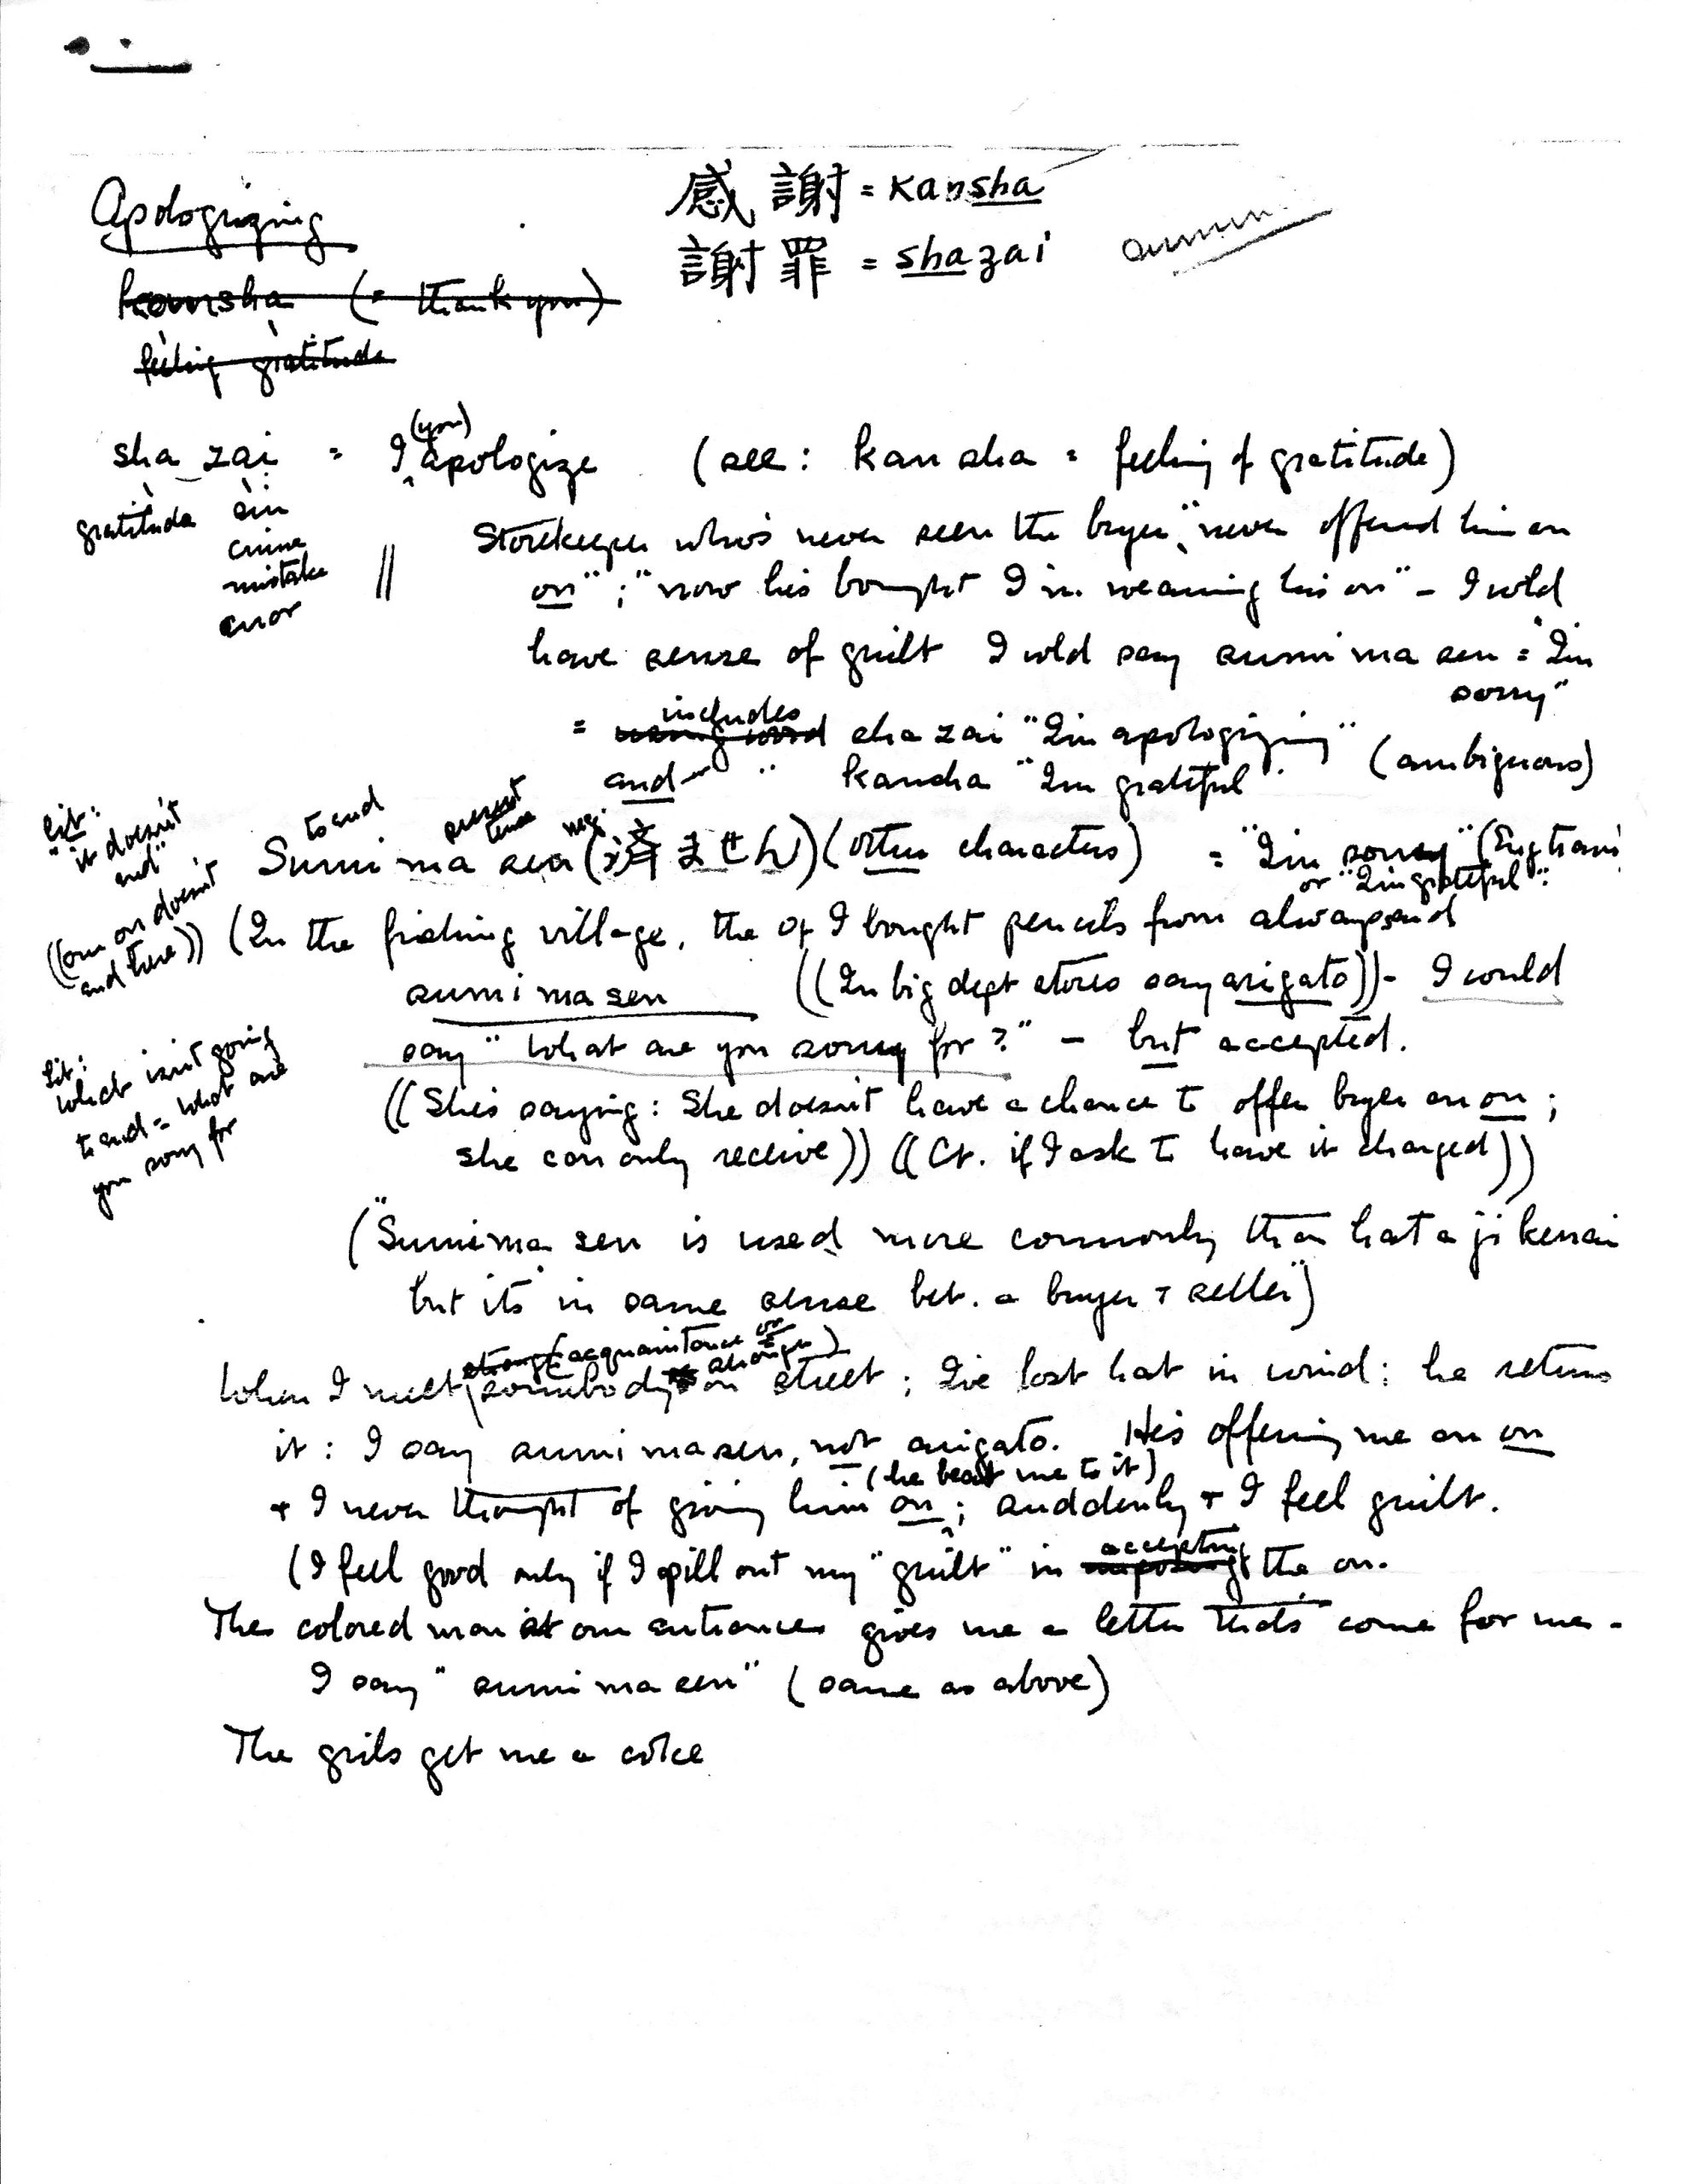 Apologizing
感謝 = kansha
謝罪 = shazai
kansha (= thank you)
feeling gratitude
sha zai = I (you) apologize (see: kan sha = feeling of gratitude)
gratitude sin
crime
mistake
error
Storekeeper who's never seen the buyer, "never offered him an
on"; "now he's bought I'm wearing his on" - I wld
have sense of guilt I wld say sumi ma sen = "I'm
sorry"
= includes sha zai "I'm apologizing"
and " kansha "I'm grateful" (ambiguous)
lit:
"it doesn't
end"
((our on doesn't
end here))
to end present tense neg.
Sumi ma sen (済ません) (other characters) = "I'm sorry" (Eng trans
or "I'm grateful".
(In the fishing village, the I bought pencils from always said
sumi ma sen ((In big dept stores say arigato)) - I would
say "What are you sorry for?" - but accepted.
lit:
what isn't going
to end = what are
you sorry for
((She's saying: She doesn't have a chance to offer buyer an on;
she can only receive)) ((Cf. if I ask to have it charged))
("Sumima sen is used more commonly than kata ji kenai
but it's in same sense bet. a buyer + seller")
(acquaintance or stranger)
When I meet somebody on street; I've lost hat in wind: he returns
it: I say sumi masen, not arigato. He's offering me an on
(he beat me to it)
+ I never thought of giving him on; suddenly + I feel guilt.
(I feel good only if I spill out my "guilt" in accepting the on.
The colored man at our entrance gives me a letter that's come for me -
I say "sumi ma sen" (same as above)
The girls get me a coke